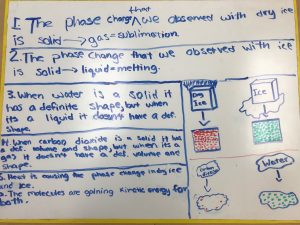 that
1. The phase change ^ we observed with dry ice
is solid → gas = sublimation.
2. The phase change that we observed with ice
is solid → liquid = melting.
3. When water is a solid it
has a definite shape, but when
its a liquid it doesnt have a def.
shape.
4. When carbon dioxide is a solid it has
a def. volume and shape, but when its a
gas it doesnt have a def. volume and
shape.
5. Heat is causing the phase change in dry ice
and ice.
6. The molecules are gaining kinetic energy for
both.
Dry
Ice
Ice
carbon
dioxide
Water